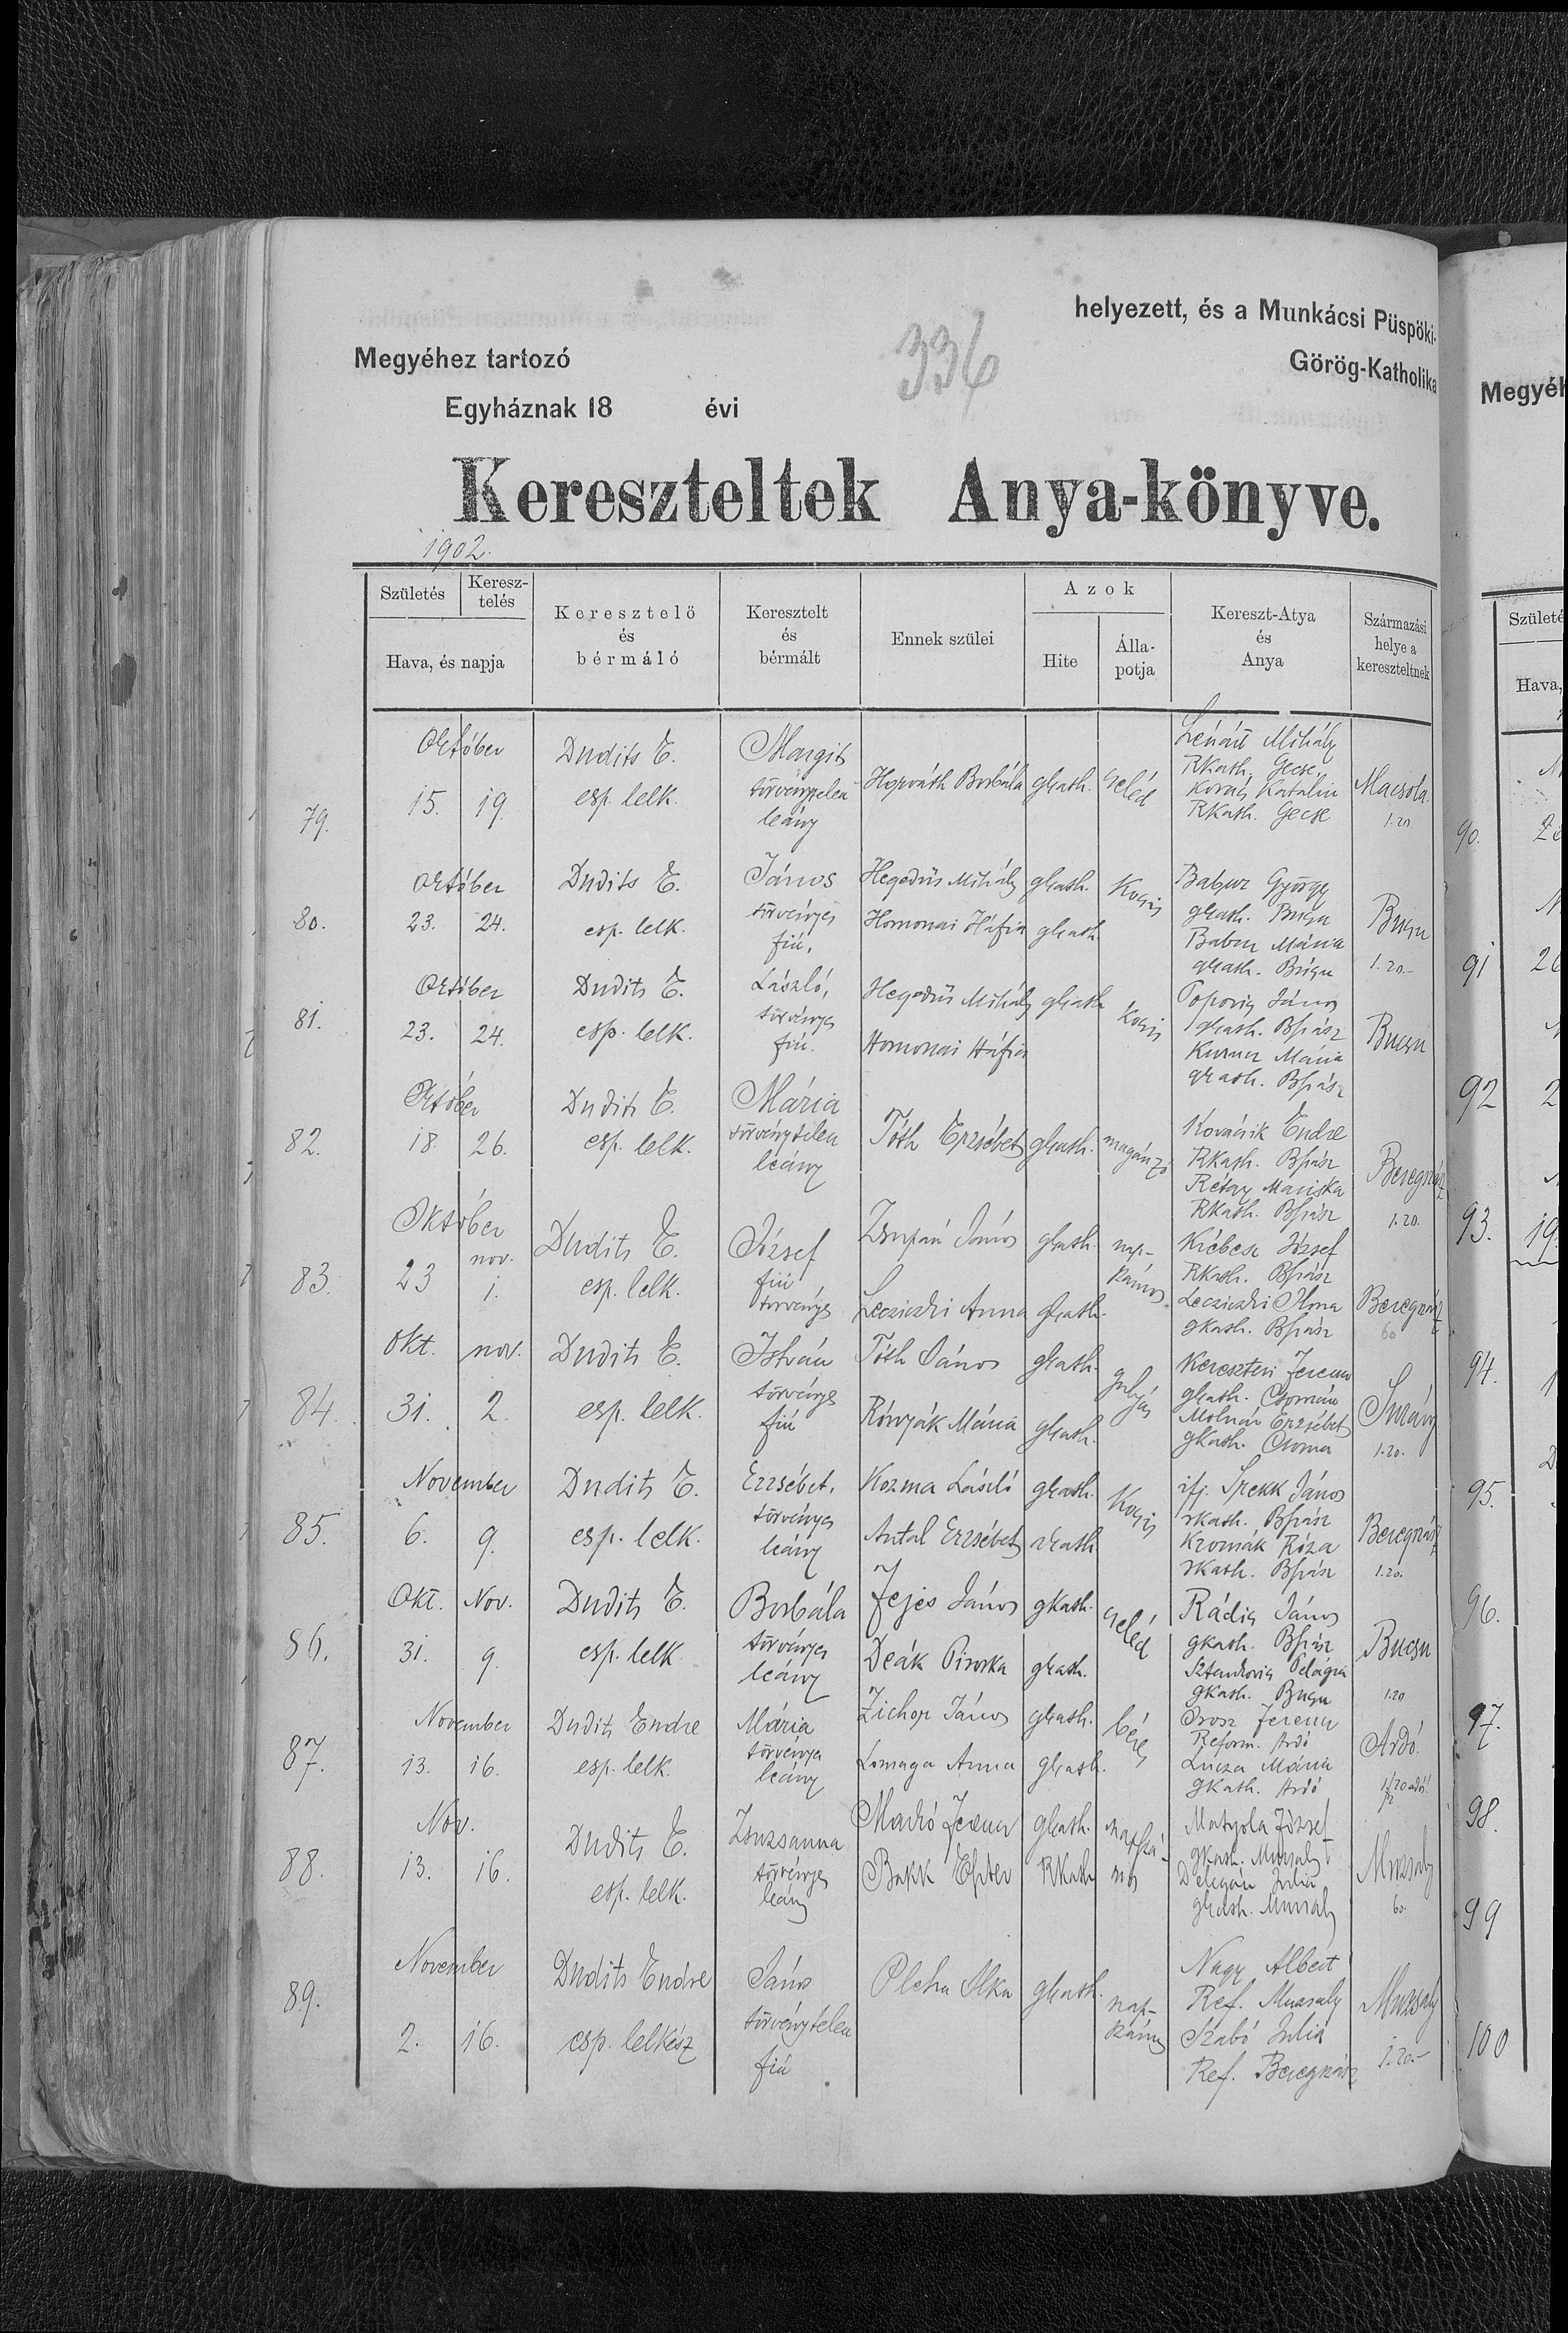 helyezett, és a Munkácsi Püspöki-
Megyéhez tartozó
Görög-Katholika
336
Egyháznak 18 évi
Kereszteltek Anya-könyve.
1902.
Születés Keresz-telés Keresztelő és bérmáló Keresztelt és bérmált Ennek szülei Azok Kereszt-Atya és Anya Származási helye a kereszteltnek
Hava, és napja Hite Álla-potja
79. Október 15. 19.
Dudits E. esp. lelk.
Margit törvénytelen leány
Horváth Borbála gkath. cseléd
Lénárt Mihály
Rkath. Gecse,
Kovács Katalin
Rkath. Gecse
Macsola.
1.20.
80. Október 23. 24.
Dudits E. esp. lelk.
János törvényes fiú,
Hegedüs Mihály gkath. Kocsis
Homonai Háfia gkath.
György
gkath. Bucsu
Mária
gkath. Bucsu
Bucsu
1.20.-
81. Október 23. 24.
Dudits E. esp. lelk.
László, törvényes fiú.
Hegedüs Mihály gkath Kocsis
Homonai Háfia
Popovics János
gkath. Bszász
Mária
gkath. Bszász
Bucsu
82. Október 18. 26.
Dudits E. esp. lelk.
Mária törvénytelen leány
Tóth Erzsébet gkath. magánzó
Kovácsik Endre
Rkath. Bszász
Rétay Mariska
Rkath. Bszász
Beregszász
1.20.
83. Október 23 nov. 1.
Dudits E. esp. lelk.
József fiú törvényes
Zsupán János gkath. nap-számos.
Lecziczki Anna gkath.
József
Rkath. Bszász
Lecziczki Ilona
gkath. Bszász
Beregszász
60
84. Okt. 31. nov. 2.
Dudits E. esp. lelk.
István törvényes fiú
Tóth János gkath. gulyás
Mária gkath.
Kereszteni Ferenc
gkath.
Molnár Erzsébet
gkath. Csoma
Surány
1.20.
85. November 6. 9.
Dudits E. esp. lelk.
Erzsébet. törvényes leány
Kozma László gkath. Kocsis
Antal Erzsébet rkath
ifj. Spekk János
rkath. Bszász
Róza
rkath. Bszász
Beregszász
1.20.
86. Okt. 31. Nov. 9.
Dudits E. esp. lelk
Borbála törvényes leány
Fejes János gkath. cseléd
Deák Piroska gkath.
Rádis János
gkath. Bszász
Pelágia
gkath. Bucsu
Bucsu
1.20
87. November 13. 16.
Dudits Endre esp. lelk.
Mária törvényes leány
Zichor János gkath. béres
Lomaga Anna gkath.
Orosz Ferenc
Reform. Ardó
Lucza Mária
gkath. Ardó
Ardó.
88. Nov. 13. 16.
Dudits E. esp. lelk.
Zsuzsanna törvényes leány
Ferenc gkath. napszá-mos
Bakk Eszter Rkath
Matyola József
gkath. Muzsaly
Julia
gkath. Muzsaly
Muzsaly
60.
89. November 2. 16.
Dudits Endre esp. lelkész
János törvénytelen fiú
Pleha Ilka gkath. nap-számos
Nagy Albert
Ref. Muzsaly
Szabó Julia
Ref. Beregszász
Muzsaly
1.20.-
Megyéh
Születé
Hava,
90.
91
92
93.
94.
95.
96.
97.
98.
99
100